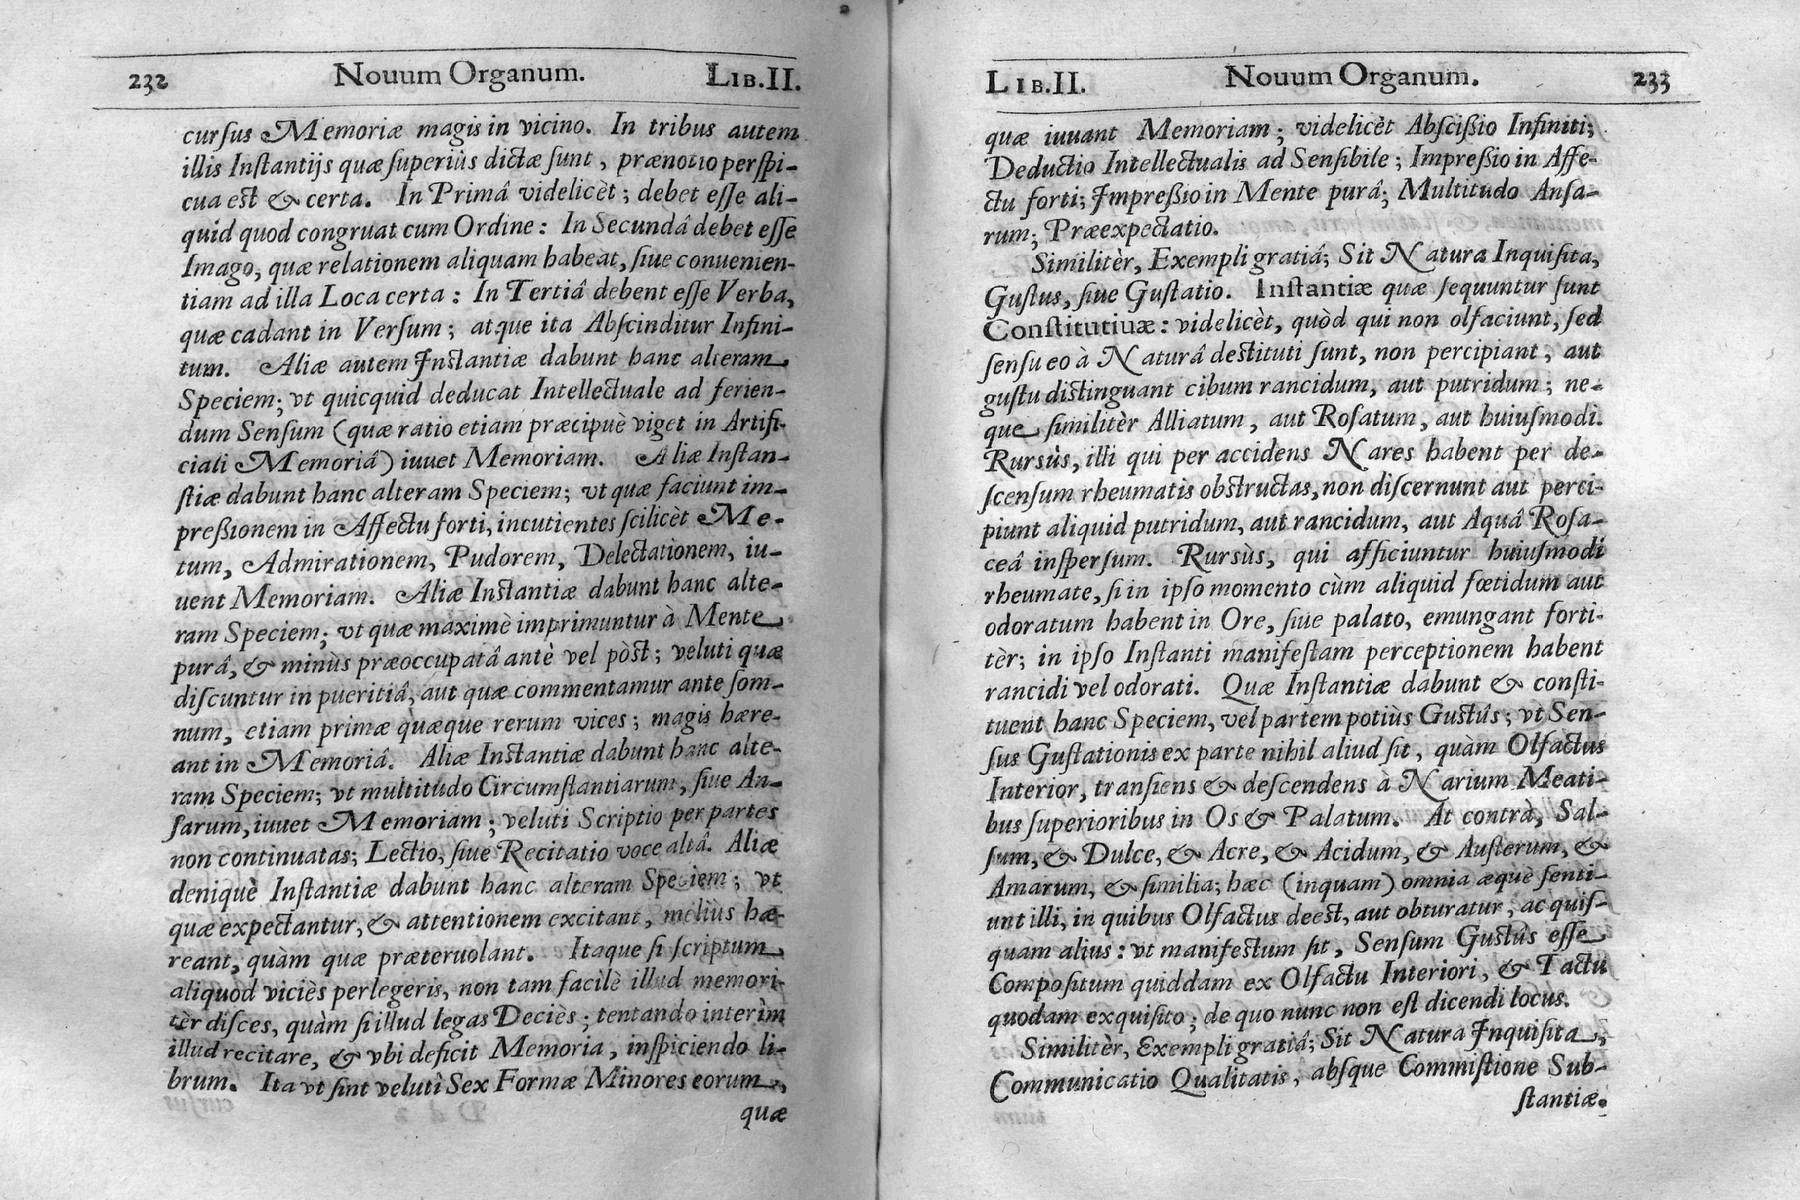 232 Nouum Organum. LIB.II.
cursus Memoriæ magis in vicino. In tribus autem
illis Instantijs quæ superiùs dictæ sunt, prænotio perspi-
cua est & certa. In Primâ videlicèt; debet esse ali-
quid quod congruat cum Ordine: In Secundâ debet esse
Imago, quæ relationem aliquam habeat, siue conuenien-
tiam ad illa Loca certa: In Tertiâ debent esse Verba,
quæ cadant in Versum; atque ita Abscinditur Infini-
tum. Aliæ autem Instantiæ dabunt hanc alteram
Speciem; vt quicquid deducat Intellectuale ad ferien-
dum Sensum (quæ ratio etiam præcipuè viget in Artifi-
ciali Memoriâ) iuuet Memoriam. Aliæ Instan-
stiæ dabunt hanc alteram Speciem; vt quæ faciunt im-
pressionem in Affectu forti, incutientes scilicèt Me-
tum, Admirationem, Pudorem, Delectationem, iu-
uent Memoriam. Aliæ Instantiæ dabunt hanc alte-
ram Speciem; vt quæ maximè imprimuntur à Mente
purâ, & minùs præoccupatâ antè vel pòst; veluti quæ
discuntur in pueritiâ, aut quæ commentamur ante som-
num, etiam primæ quæque rerum vices; magis hære-
ant in Memoriâ. Aliæ Instantiæ dabunt hanc alte-
ram Speciem; vt multitudo Circumstantiarum, siue An-
sarum, iuuet Memoriam; veluti Scriptio per partes
non continuatas; Lectio, siue Recitatio voce altâ. Aliæ
deniquè Instantiæ dabunt hanc alteram Speciem; vt
quæ expectantur, & attentionem excitant, meliùs hæ-
reant, quàm quæ præteruolant. Itaque si scriptum
aliquod viciès perlegeris, non tam facilè illud memori-
tèr disces, quàm si illud legas Deciès; tentando interìm
illud recitare, & vbi deficit Memoria, inspiciendo li-
brum. Ita vt sint velutì Sex Formæ Minores eorum,
quæ
LIB.II. Nouum Organum. 233
quæ iuuant Memoriam; videlicèt Abscissio Infiniti;
Deductio Intellectualis ad Sensibile; Impressio in Affe-
ctu forti; Impressio in Mente purâ; Multitudo Ansa-
rum; Præexpectatio.
Similitèr, Exempli gratiâ; Sit Natura Inquisita,
Gustus, siue Gustatio. Instantiæ quæ sequuntur sunt
Constitutiuæ: videlicèt, quòd qui non olfaciunt, sed
sensu eo à Naturâ destituti sunt, non percipiant, aut
gustu distinguant cibum rancidum, aut putridum; ne-
que similitèr Alliatum, aut Rosatum, aut huiusmodi.
Rursùs, illi qui per accidens Nares habent per de-
scensum rheumatis obstructas, non discernunt aut perci-
piunt aliquid putridum, aut rancidum, aut Aquâ Rosa-
ceâ inspersum. Rursùs, qui afficiuntur huiusmodi
rheumate, si in ipso momento cùm aliquid fœtidum aut
odoratum habent in Ore, siue palato, emungant forti-
tèr; in ipso Instanti manifestam perceptionem habent
rancidi vel odorati. Quæ Instantiæ dabunt & consti-
tuent hanc Speciem, vel partem potiùs Gustûs; vt Sen-
sus Gustationis ex parte nihil aliud sit, quàm Olfactus
Interior, transiens & descendens à Narium Meati-
bus superioribus in Os & Palatum. At contrà, Sal-
sum, & Dulce, & Acre, & Acidum, & Austerum, &
Amarum, & similia; hæc (inquam) omnia æquè senti-
unt illi, in quibus Olfactus deest, aut obturatur, ac quis-
quam alius: vt manifestum sit, Sensum Gustûs esse
Compositum quiddam ex Olfactu Interiori, & Tactu
quodam exquisito; de quo nunc non est dicendi locus.
Similitèr, Exempli gratiâ; Sit Natura Inquisita,
Communicatio Qualitatis, absque Commistione Sub-
stantiæ.